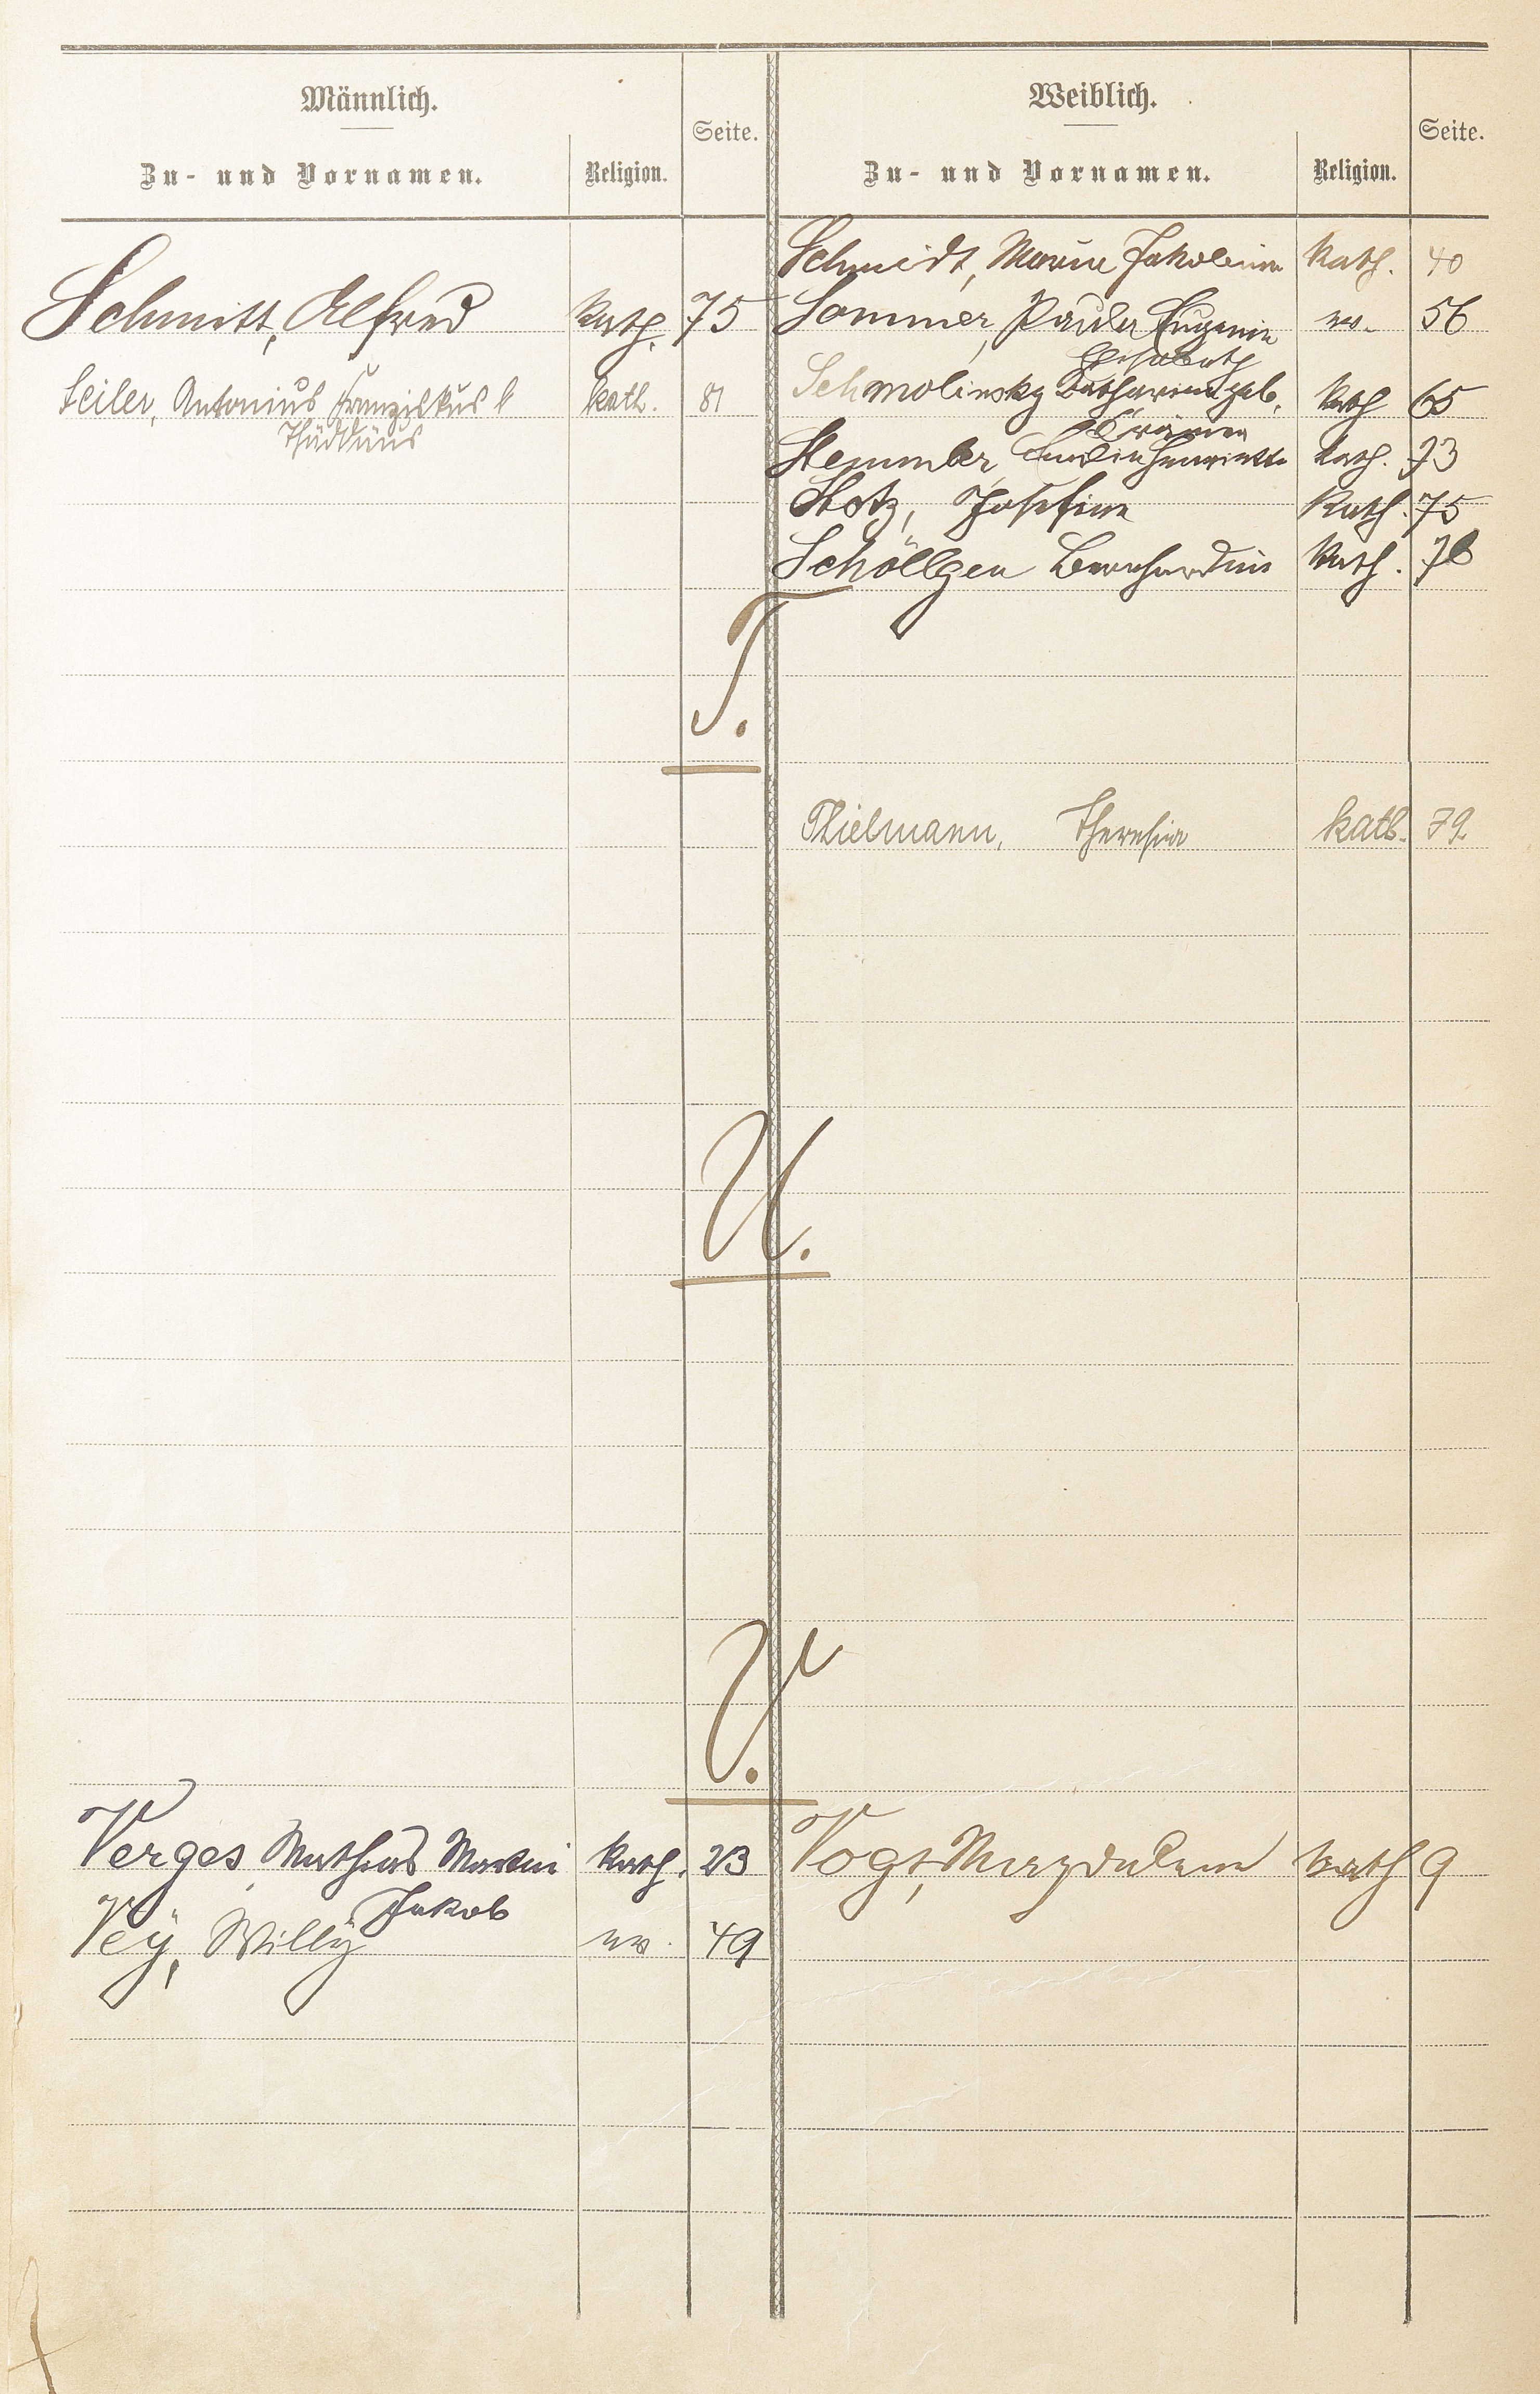 Männlich.
Zu- und Vornamen.
Religion.
Seite.
Schmitt, Alfred Kath. 75
Seiler, Antonius Franziskus kath. 81
Thaddäus
Weiblich.
Zu- und Vornamen.
Religion.
Seite.
Schmidt, Maria Jakobina Kath. 40
Sommer, Paula Eugenie 56
Elisabeth
Schmolinsky Katharina geb. Kath 65
Stemmler Henriette Kath. 73
Stotz, Josefina Kath. 75
Schöllgen Bernhardine Kath. 76
T.
Thielmann, Theresia kath. 79.
U.
V.
Verges, Mathias Martin Kath. 23
Jakob
Vey, Willy 49
Vogt, Magdalena Kath 9